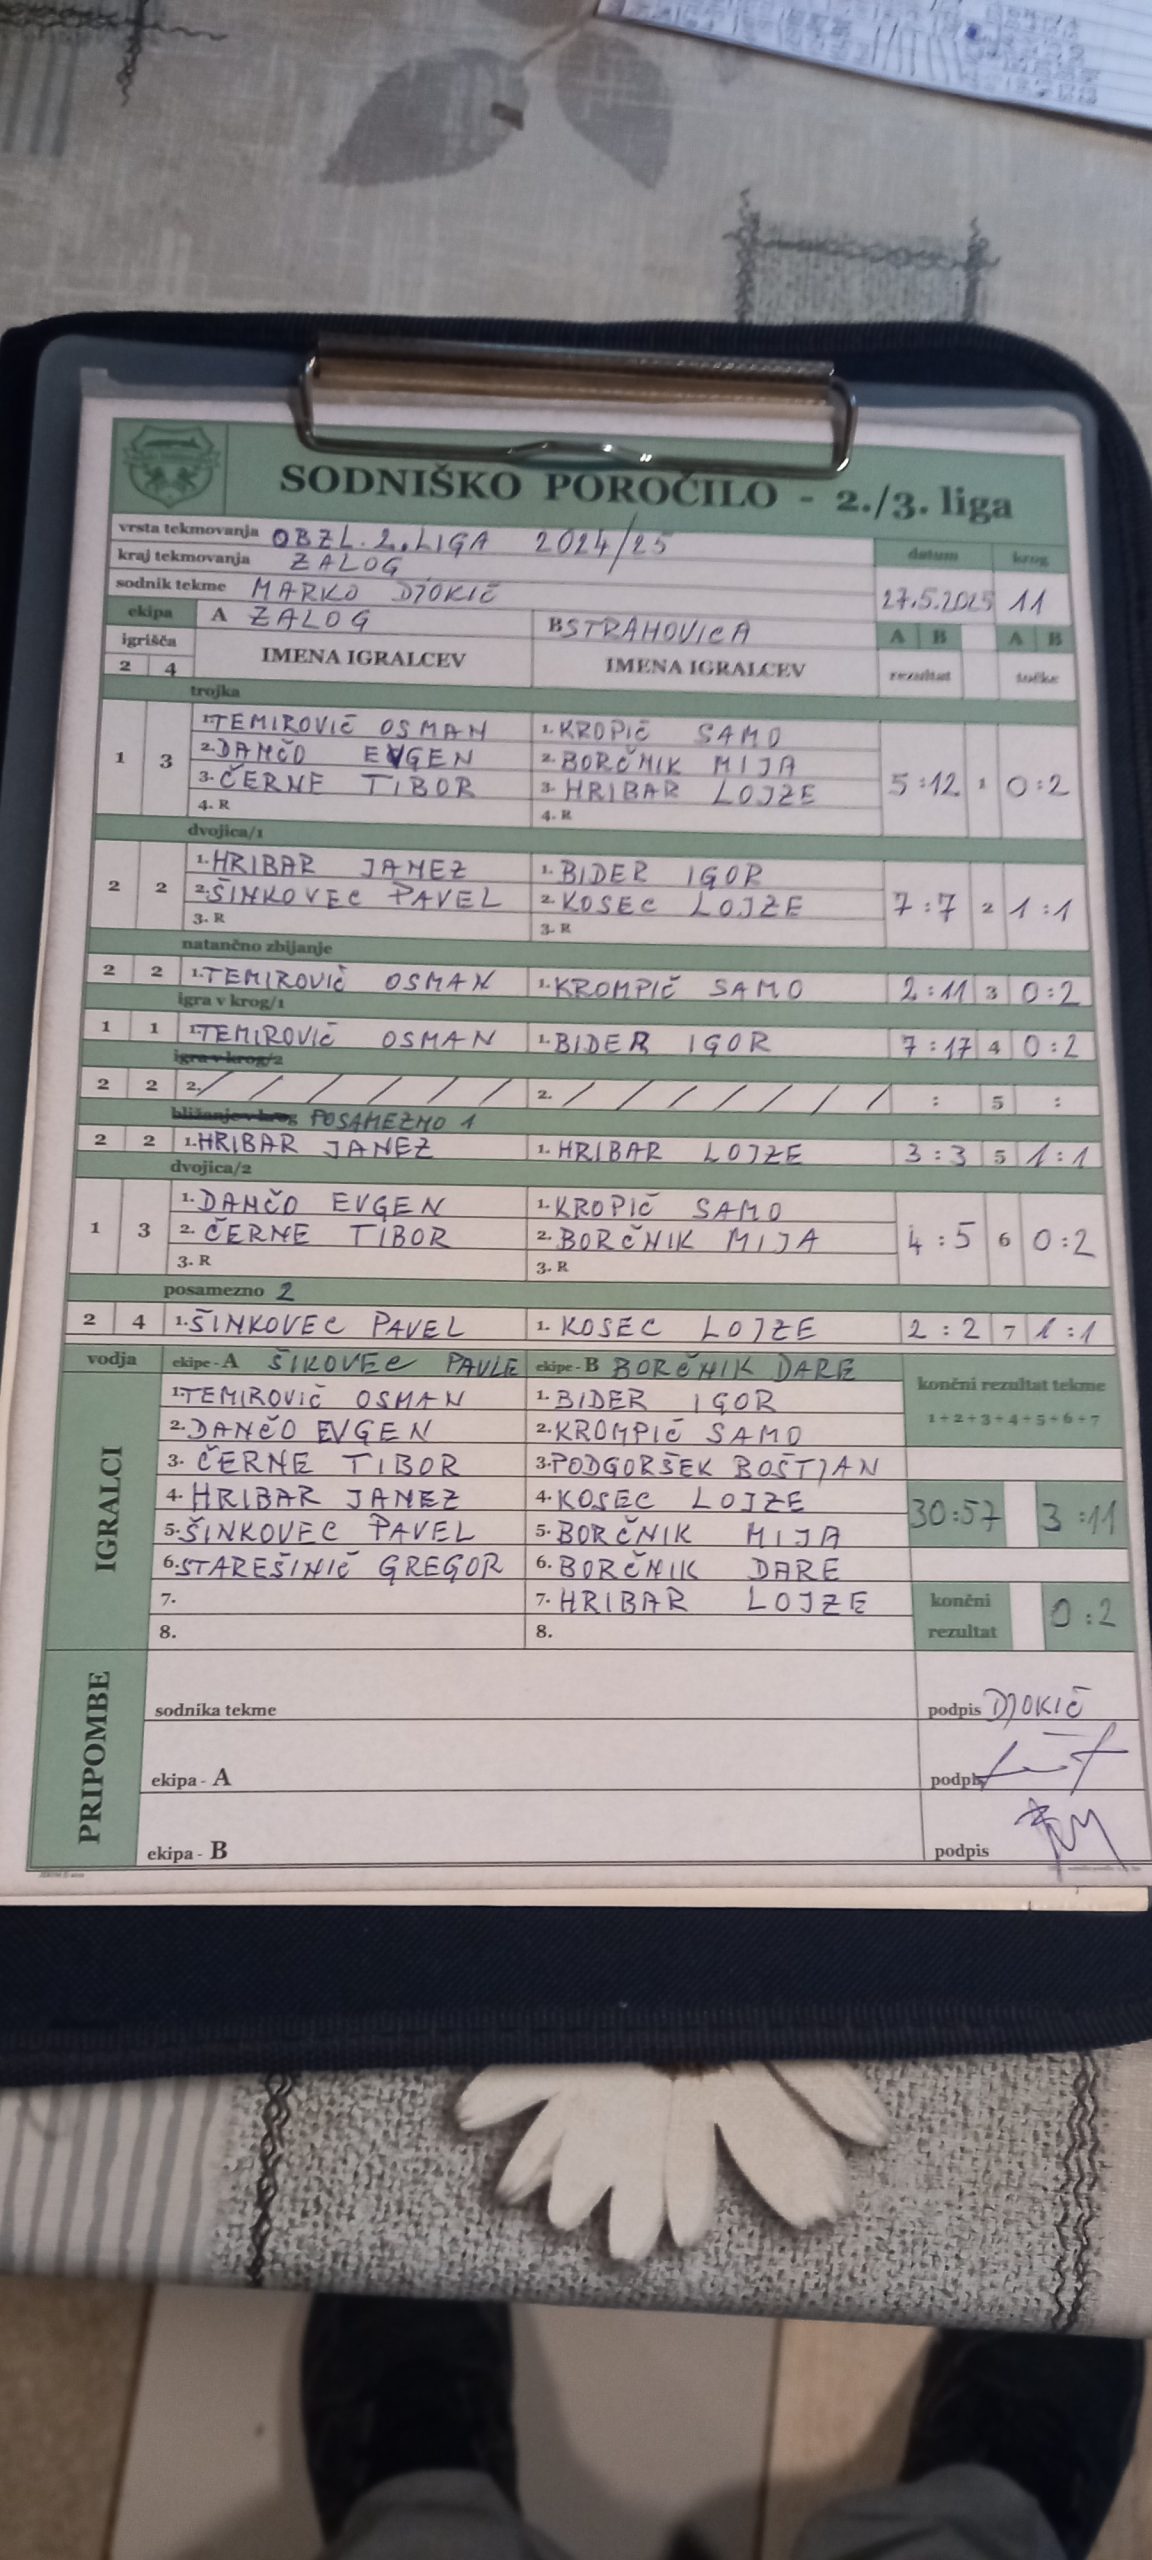 SODNIŠKO POROČILO - 2./3. liga
vrsta tekmovanja OBZL. 2. LIGA 2024/25
kraj tekmovanja ZALOG datum krog
sodnik tekme MARKO DJOKIČ 27.5.2025 11
ekipa A ZALOG B STRAHOVICA A B A B
igrišča IMENA IGRALCEV IMENA IGRALCEV rezultat točke
2 4
trojka
1. TEMIROVIČ OSMAN 1. KROPIČ SAMO
1 3 2. DANČO EVGEN 2. BORČNIK MIJA 5:12 1 0:2
3. ČERNE TIBOR 3. HRIBAR LOJZE
4. R 4. R
dvojica/1
1. HRIBAR JANEZ 1. BIDER IGOR
2 2 2. ŠINKOVEC PAVEL 2. KOSEC LOJZE 7:7 2 1:1
3. R 3. R
natančno zbijanje
2 2 1. TEMIROVIČ OSMAN 1. KROMPIČ SAMO 2:11 3 0:2
igra v krog/1
1 1 1. TEMIROVIČ OSMAN 1. BIDER IGOR 7:17 4 0:2
igra v krog/2
2 2 2. / / / / / / / 2. / / / / / / / / : 5 :
bližanje v krog POSAMEZNO 1
2 2 1. HRIBAR JANEZ 1. HRIBAR LOJZE 3:3 5 1:1
dvojica/2
1. DANČO EVGEN 1. KROPIČ SAMO
1 3 2. ČERNE TIBOR 2. BORČNIK MIJA 4:5 6 0:2
3. R 3. R
posamezno 2
2 4 1. ŠINKOVEC PAVEL 1. KOSEC LOJZE 2:2 7 1:1
vodja ekipe - A ŠIKOVEC PAVLE ekipe - B BORČNIK DARE
IGRALCI
1. TEMIROVIČ OSMAN 1. BIDER IGOR končni rezultat tekme
2. DANČO EVGEN 2. KROMPIČ SAMO 1+2+3+4+5+6+7
3. ČERNE TIBOR 3. PODGORŠEK BOŠTJAN
4. HRIBAR JANEZ 4. KOSEC LOJZE 30:57 3:11
5. ŠINKOVEC PAVEL 5. BORČNIK MIJA
6. STAREŠINIČ GREGOR 6. BORČNIK DARE
7. 7. HRIBAR LOJZE končni
8. 8. rezultat 0:2
PRIPOMBE
sodnika tekme podpis DJOKIČ
ekipa - A podpis
ekipa - B podpis